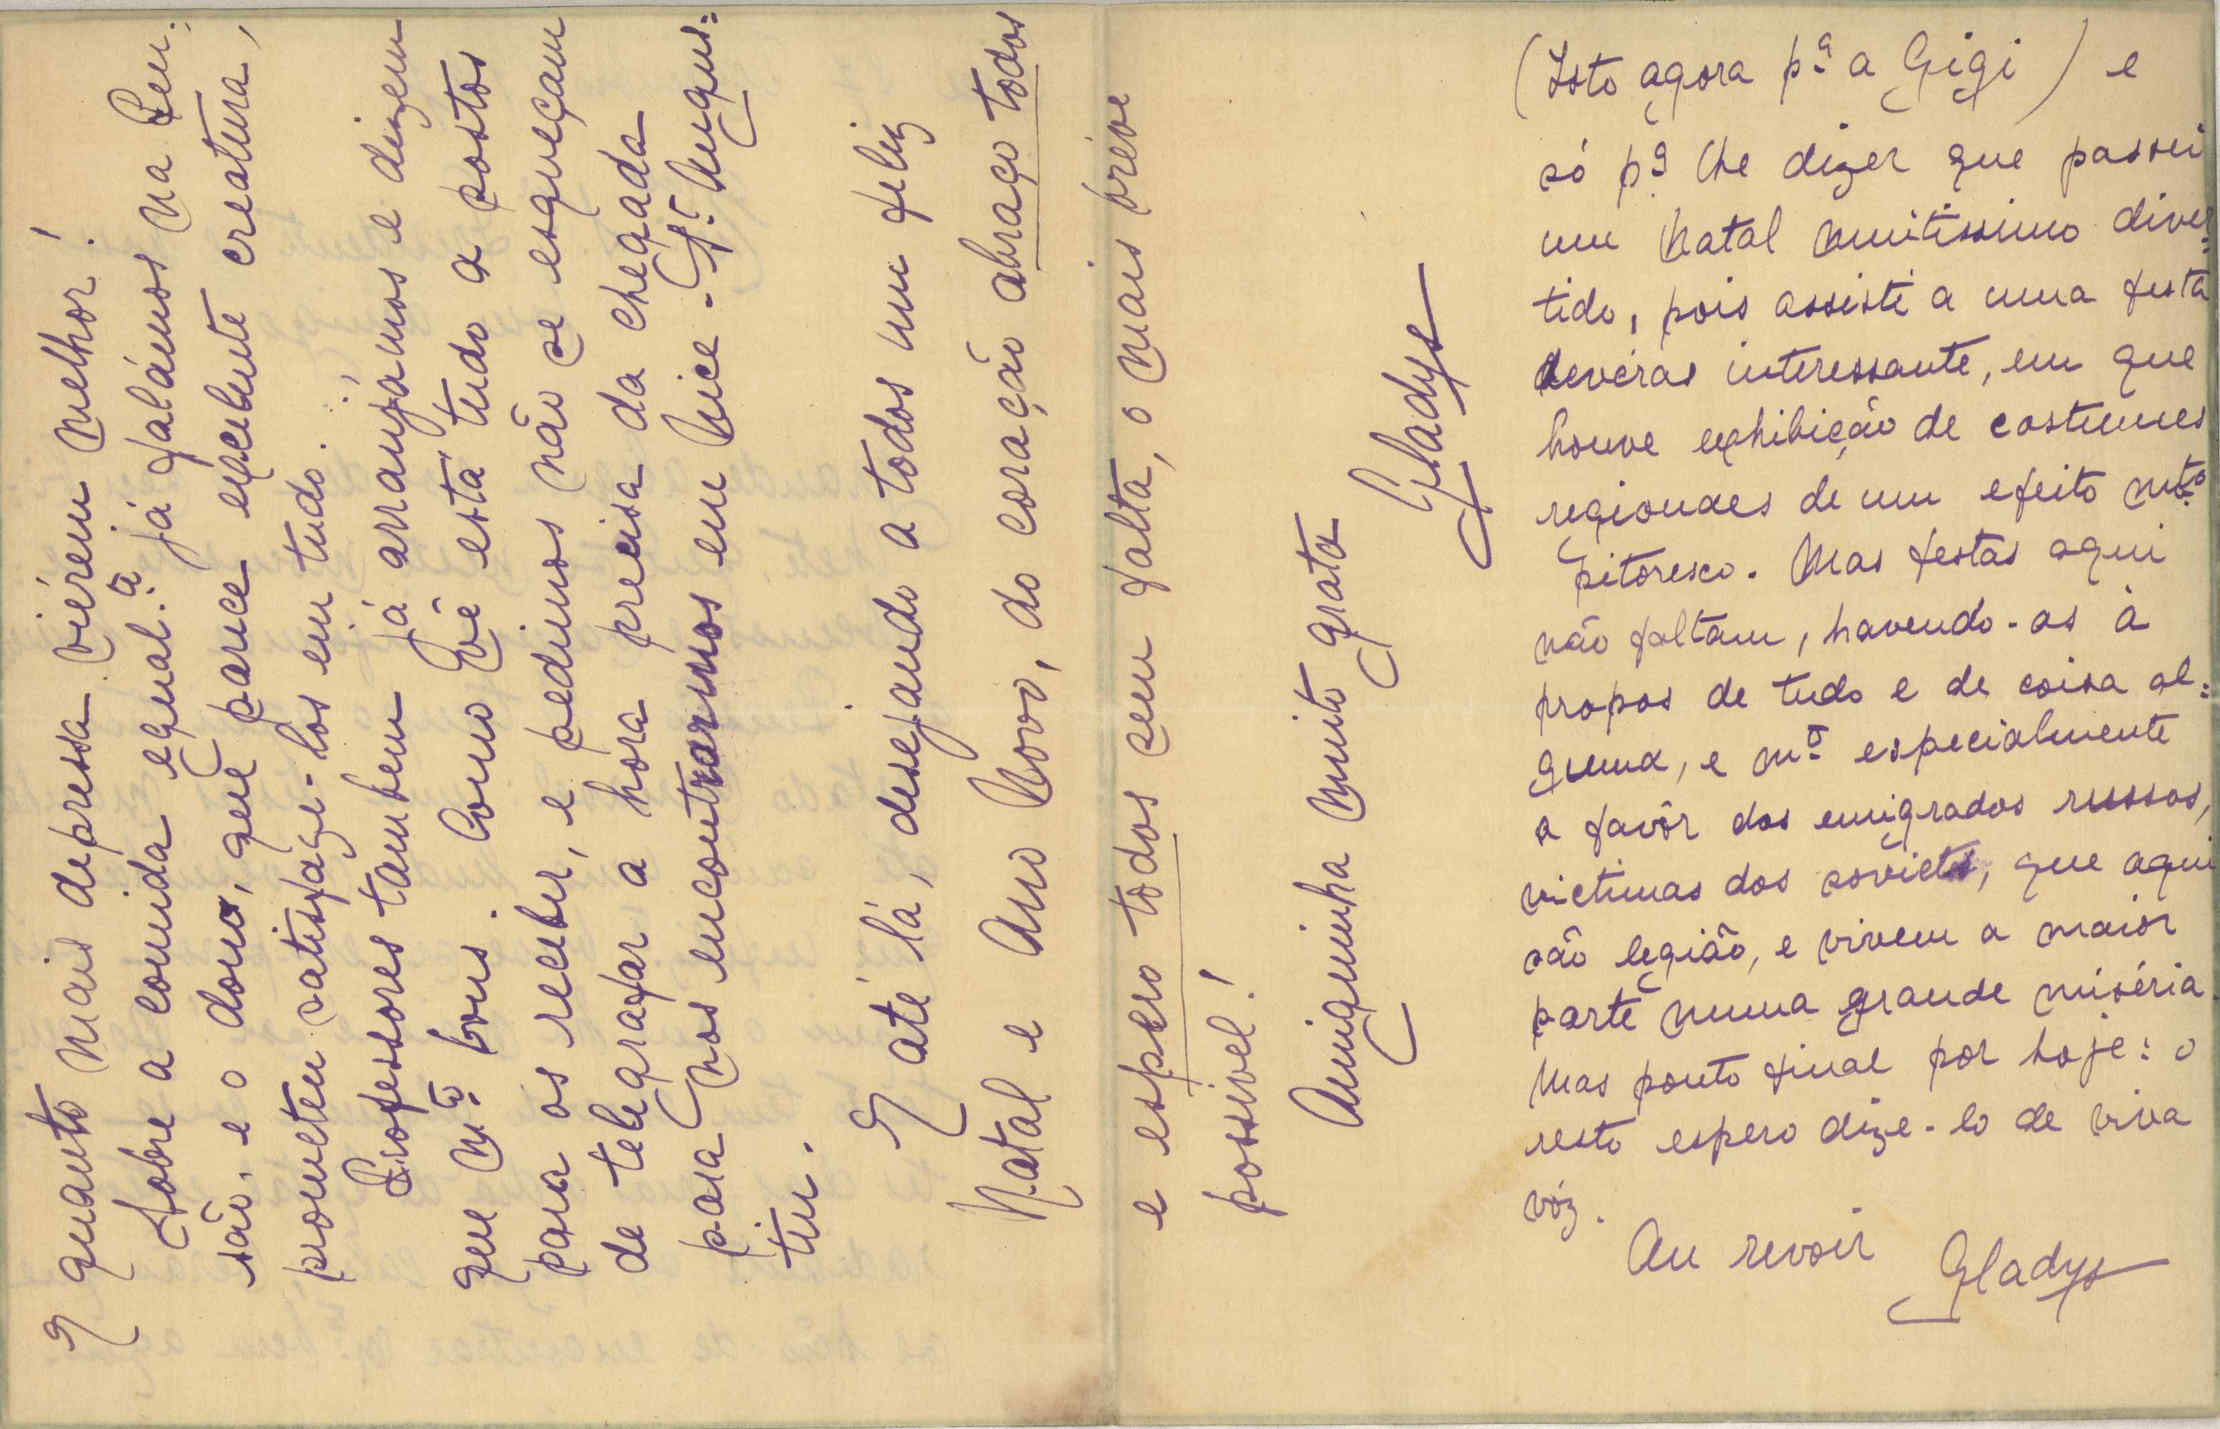 E quanto mais depressa viérem melhor!
Sobre a comida egual.te já falámos na Pen-
são, e o dono, que parece excelente creatura,
prometeu satisfaze-los em tudo...
Professores tambem já arranjámos e dizem
que m.to bons. Como vê está tudo a postos
para os receber, e pedimos não se esqueçam
de telegrafar a hora precisa da chegada
para nos encontrarmos em Nice. St. Augus=
tin.
E até lá, desejando a todos um feliz
Natal e Ano Novo, do coração abraço todos
e espero todos sem falta, o mais breve
possivel!
Amiguinha muito grata
Gladys
(Isto agora p.a a Gigi) e
só p.a lhe dizer que passei
um Natal muitissimo diver=
tido, pois assisti a uma festa
devéras interessante, em que
houve exhibição de costumes
regionaes de um efeito m.to
pitoresco. Mas festas aqui
não faltam, havendo-as à
propos de tudo e de coisa al=
guma, e m.to especialmente
a favôr dos emigrados russos,
victimas dos soviets, que aqui
são legião, e vivem a maior
parte numa grande miséria.
Mas ponto final por hoje: o
resto espero dize-lo de viva
vóz.
Au revoir
Gladys